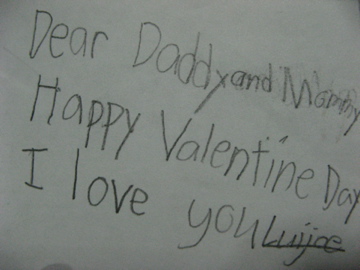 Dear Daddy and Mommy
Happy Valentine Day
I love you